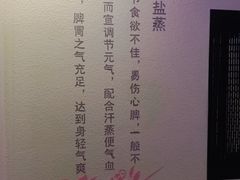 盐蒸
食欲不佳，易伤心脾，一般不
而宣调节元气，配合汗蒸使气血
，脾胃之气充足，达到身轻气爽